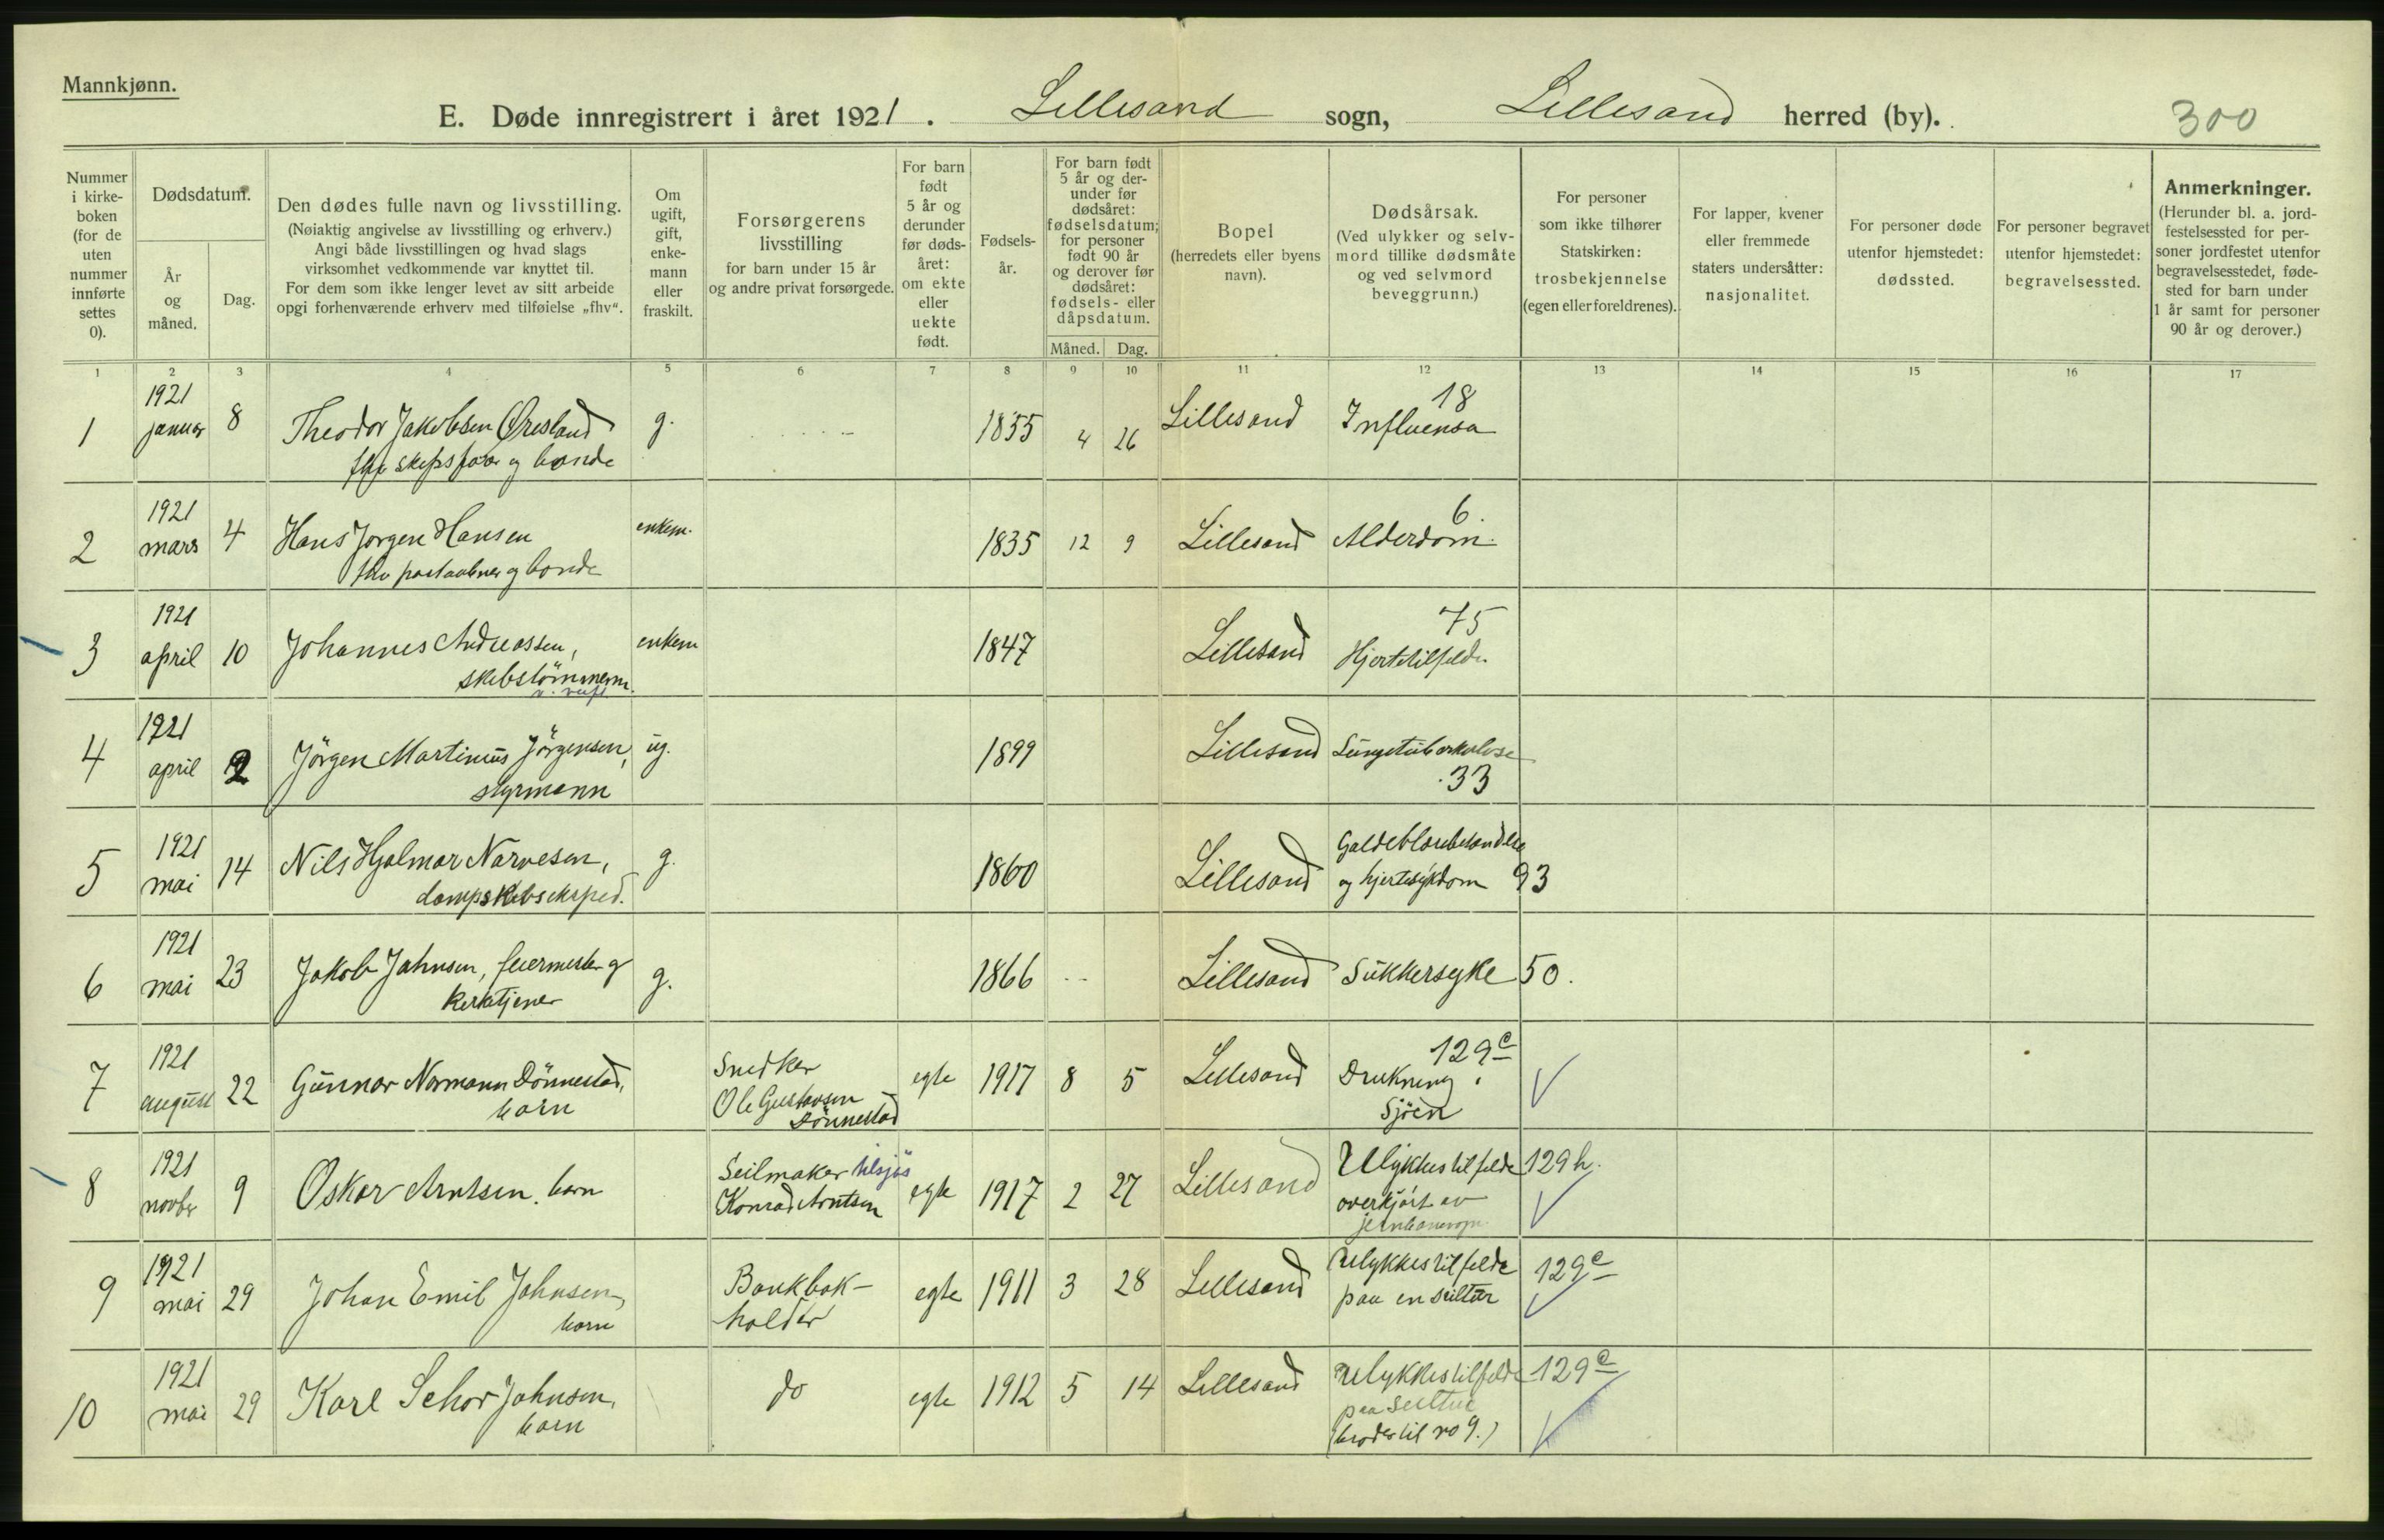 Mannkjønn.
E. Døde innregistrert i året 1921. Lillesand sogn, Lillesand herred (by).
300
Nummer i kirke- boken (for de uten nummer innførte settes 0).
Dødsdatum.
År og måned.
Dag.
Den dødes fulle navn og livsstilling.
(Nøiaktig angivelse av livsstilling og erhverv.)
Angi både livsstillingen og hvad slags
virksomhet vedkommende var knyttet til.
For dem som ikke lenger levet av sitt arbeide
opgi forhenværende erhverv med tilføielse „fhv“.
Om ugift, gift, enke- mann eller fraskilt.
Forsørgerens
livsstilling
for barn under 15 år
og andre privat forsørgede.
For barn født 5 år og derunder før døds- året: om ekte eller uekte født.
Fødsels- år.
For barn født 5 år og der- under før dødsåret: fødselsdatum; for personer født 90 år og derover før dødsåret: fødsels- eller dåpsdatum.
Måned. Dag.
Bopel
(herredets eller byens
navn).
Dødsårsak.
(Ved ulykker og selv-
mord tillike dødsmåte
og ved selvmord
beveggrunn.)
For personer
som ikke tilhører
Statskirken:
trosbekjennelse
(egen eller foreldrenes).
For lapper, kvener
eller fremmede
staters undersåtter:
nasjonalitet.
For personer døde
utenfor hjemstedet:
dødssted.
For personer begravet
utenfor hjemstedet:
begravelsessted.
Anmerkninger.
(Herunder bl. a. jord-
festelsessted for per-
soner jordfestet utenfor
begravelsesstedet, føde-
sted for barn under
1 år samt for personer
90 år og derover.)
1 2 3 4 5 6 7 8 9 10 11 12 13 14 15 16 17
1921 18
1 januar 8 Theodor Jakobsen Øresland g. 1855 4 26 Lillesand Influensa
fhv og bonde
1921 6.
2 mars 4 Hans Jørgen Hansen enkem. 1835 12 9 Lillesand Alderdom.
fhv postaabner og bonde
1921 75
3 april 10 Johannes Andreassen, enkem 1847 Lillesand Hjertetilfelde
skibstömmerm.
1921
4 april 2 Jörgen Martinius Jörgensen, ug. 1899 Lillesand Lungetuberkulose
styrmann 33
1921
5 mai 14 Nils Hjalmar Narvesen, g. 1860 Lillesand Galdeblærebetændelse
dampskibseksped. og hjertesykdom 93
1921
6 mai 23 Jakob Jahnsen, feiermester og g. 1866 Lillesand Sukkersyke 50.
kirketjener
1921 129c
7 august 22 Gunnar Normann Dönnestad, Snedker egte 1917 8 5 Lillesand Drukning i
barn Ole Gustavsen Sjöen
Dönnestad
1921
8 novbr 9 Oskar Arntsen, barn Seilmaker tilsjös egte 1917 2 27 Lillesand Ulykkestilfelde 129h.
Konrad Arntsen overkjört av
jernbanevogn
1921
9 mai 29 Johan Emil Jahnsen, Bankbok- egte 1911 3 28 Lillesand Ulykkestilfelde 129c
barn holder paa en seiltur
1921
10 mai 29 Karl Jahnsen, do egte 1912 5 14 Lillesand Ulykkestilfelde 129c
barn paa seiltur
(broder til no 9.)